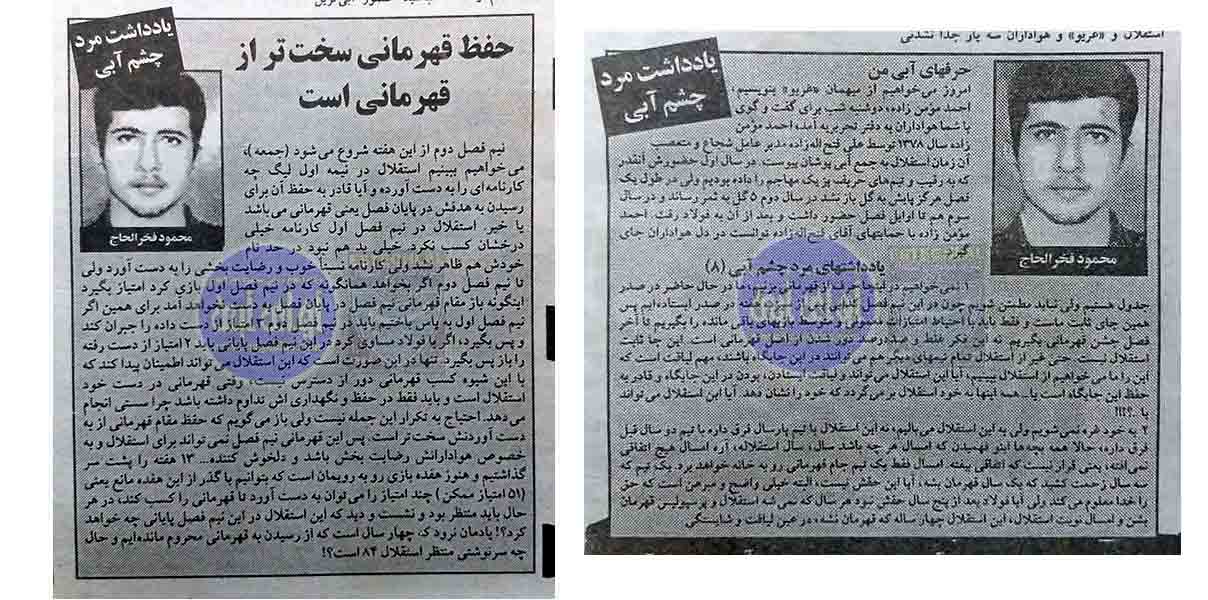 یادداشت مرد
چشم آبی
حفظ قهرمانی سخت‌تر از
قهرمانی است
محمود فخرالحاج
نیم فصل دوم از این هفته شروع می‌شود (جمعه)،
می‌خواهیم ببینیم استقلال در نیمه اول لیگ چه
کارنامه‌ای را به دست آورده و آیا قادر به حفظ آن برای
رسیدن به هدفش در پایان فصل یعنی قهرمانی می‌باشد
یا خیر. استقلال در نیم فصل اول کارنامه خیلی
درخشان کسب نکرد. خیلی بد هم نبود در حد نام
خودش هم ظاهر نشد ولی کارنامه نسبتا خوب و رضایت بخشی را به دست آورد ولی
در نیم فصل دوم اگر بخواهد همانگونه که در نیم فصل اول بازی کرد امتیاز بگیرد
اینگونه باز مقام قهرمانی نیم فصل در پایان فصل به دست نخواهد آمد. برای همین اگر
نیم فصل اول به پاس باختیم باید در نیم فصل دوم ۳ امتیاز از دست داده را جبران کند
و پس بگیرد، اگر با فولاد مساوی کرد در این نیم فصل پایانی باید ۲ امتیاز از دست رفته
را باز پس بگیرد. تنها در این صورت است که این استقلال می‌تواند اطمینان پیدا کند که
با این شیوه کسب قهرمانی دور از دسترس نیست، وقتی قهرمانی در دست خود
استقلال است و باید فقط در حفظ و نگهداری اش تداوم داشته باشد چرا سستی انجام
می‌دهد. احتیاج به تکرار این جمله نیست ولی باز می‌گویم که حفظ مقام قهرمانی از به
دست آوردنش سخت‌تر است. پس این قهرمانی نیم فصل نمی‌تواند برای استقلال و به
خصوص هوادارانش رضایت بخش باشد و دلخوش کننده... ۱۳ هفته را پشت سر
گذاشتیم و هنوز هفده بازی رو به رویمان است که بتوانیم با گذر از این هفده مانع یعنی
(۵۱ امتیاز ممکن) چند امتیاز را می‌توان به دست آورد تا قهرمانی را کسب کند، در هر
حال باید منتظر بود و نشست و دید که این استقلال در این نیم فصل پایانی چه خواهد
کرد؟! یادمان نرود که چهار سال است که از رسیدن به قهرمانی محروم مانده‌ایم و حال
چه سرنوشتی منتظر استقلال ۸۴ است؟!
استقلال و «غریو» و هواداران سه یار جدا نشدنی
یادداشت مرد
چشم آبی
حرفهای آبی من
امروز می‌خواهیم از میهمان «غریو» بنویسیم،
احمد مؤمن زاده، دوشنبه شب برای گفت و گوی
با شما هواداران به دفتر تحریریه آمد، احمد مؤمن
زاده سال ۱۳۷۸ توسط علی فتح‌اله‌زاده مدیر عامل شجاع و متعصب
آن زمان استقلال به جمع آبی پوشان پیوست. در سال اول حضورش آنقدر
که به رقیب و تیم‌های حریف پز یک مهاجم را داده بودیم ولی در طول یک
فصل هرگز پایش به گل باز نشد در سال دوم ۵ گل به ثمر رساند و در سال
سوم هم تا اوایل فصل حضور داشت و بعد از آن به فولاد رفت. احمد
مؤمن زاده با حمایتهای آقای فتح‌اله‌زاده توانست در دل هواداران جای
گیرد.
محمود فخرالحاج
یادداشتهای مرد چشم آبی (۸)
۱ـ نمی‌خواهیم در اینجا حرف از قهرمانی بزنیم، ما در حال حاضر در صدر
جدول هستیم ولی نباید مطمئن شویم چون در این نیم فصل در صدر ایستاده‌ایم پس
همین جای ثابت ماست و فقط باید با احتیاط امتیازات بازیهای باقی مانده را بگیریم تا آخر
فصل جشن قهرمانی بگیریم. نه این فکر غلط و صددرصد دور شدن از اصل قهرمانی است. این جا ثابت
استقلال نیست حتی غیر از استقلال تمام تیمهای دیگر هم می‌توانند در این جایگاه باشند، مهم لیاقت است که
این را ما می‌خواهیم از استقلال ببینیم، آیا این استقلال می‌تواند لیاقت ایستادن، بودن در این جایگاه و قادر به
حفظ این جایگاه است یا... همه اینها به خود استقلال بر می‌گردد که خود را نشان دهد. آیا این استقلال می‌تواند
یا ..؟!!!
۲ـ به خود غره نمی‌شویم ولی به این استقلال می‌بالیم، نه این استقلال با تیم پارسال فرق داره با تیم دو سال قبل
فرق داره، حالا همه بچه‌ها اینو فهمیدن که امسال هر چه باشد سال، سال استقلاله، آره امسال هیچ اتفاقی
نمی‌افته، یعنی قرار نیست که اتفاقی بیفته. امسال فقط یک تیم جام قهرمانی رو به خانه خواهد برد. یک تیم که
سه سال زحمت کشید که یک سال قهرمان بشه، آیا این حقش نیست، البته خیلی واضح و مبرهن است که حق
را خدا معلوم می‌کند ولی آیا فولاد بعد از پنج سال حقش نبود هر سال که نمی‌شه استقلال و پرسپولیس قهرمان
بشن و امسال نوبت استقلال، این استقلال چهار ساله که قهرمان نشده، در عین لیاقت و شایستگی